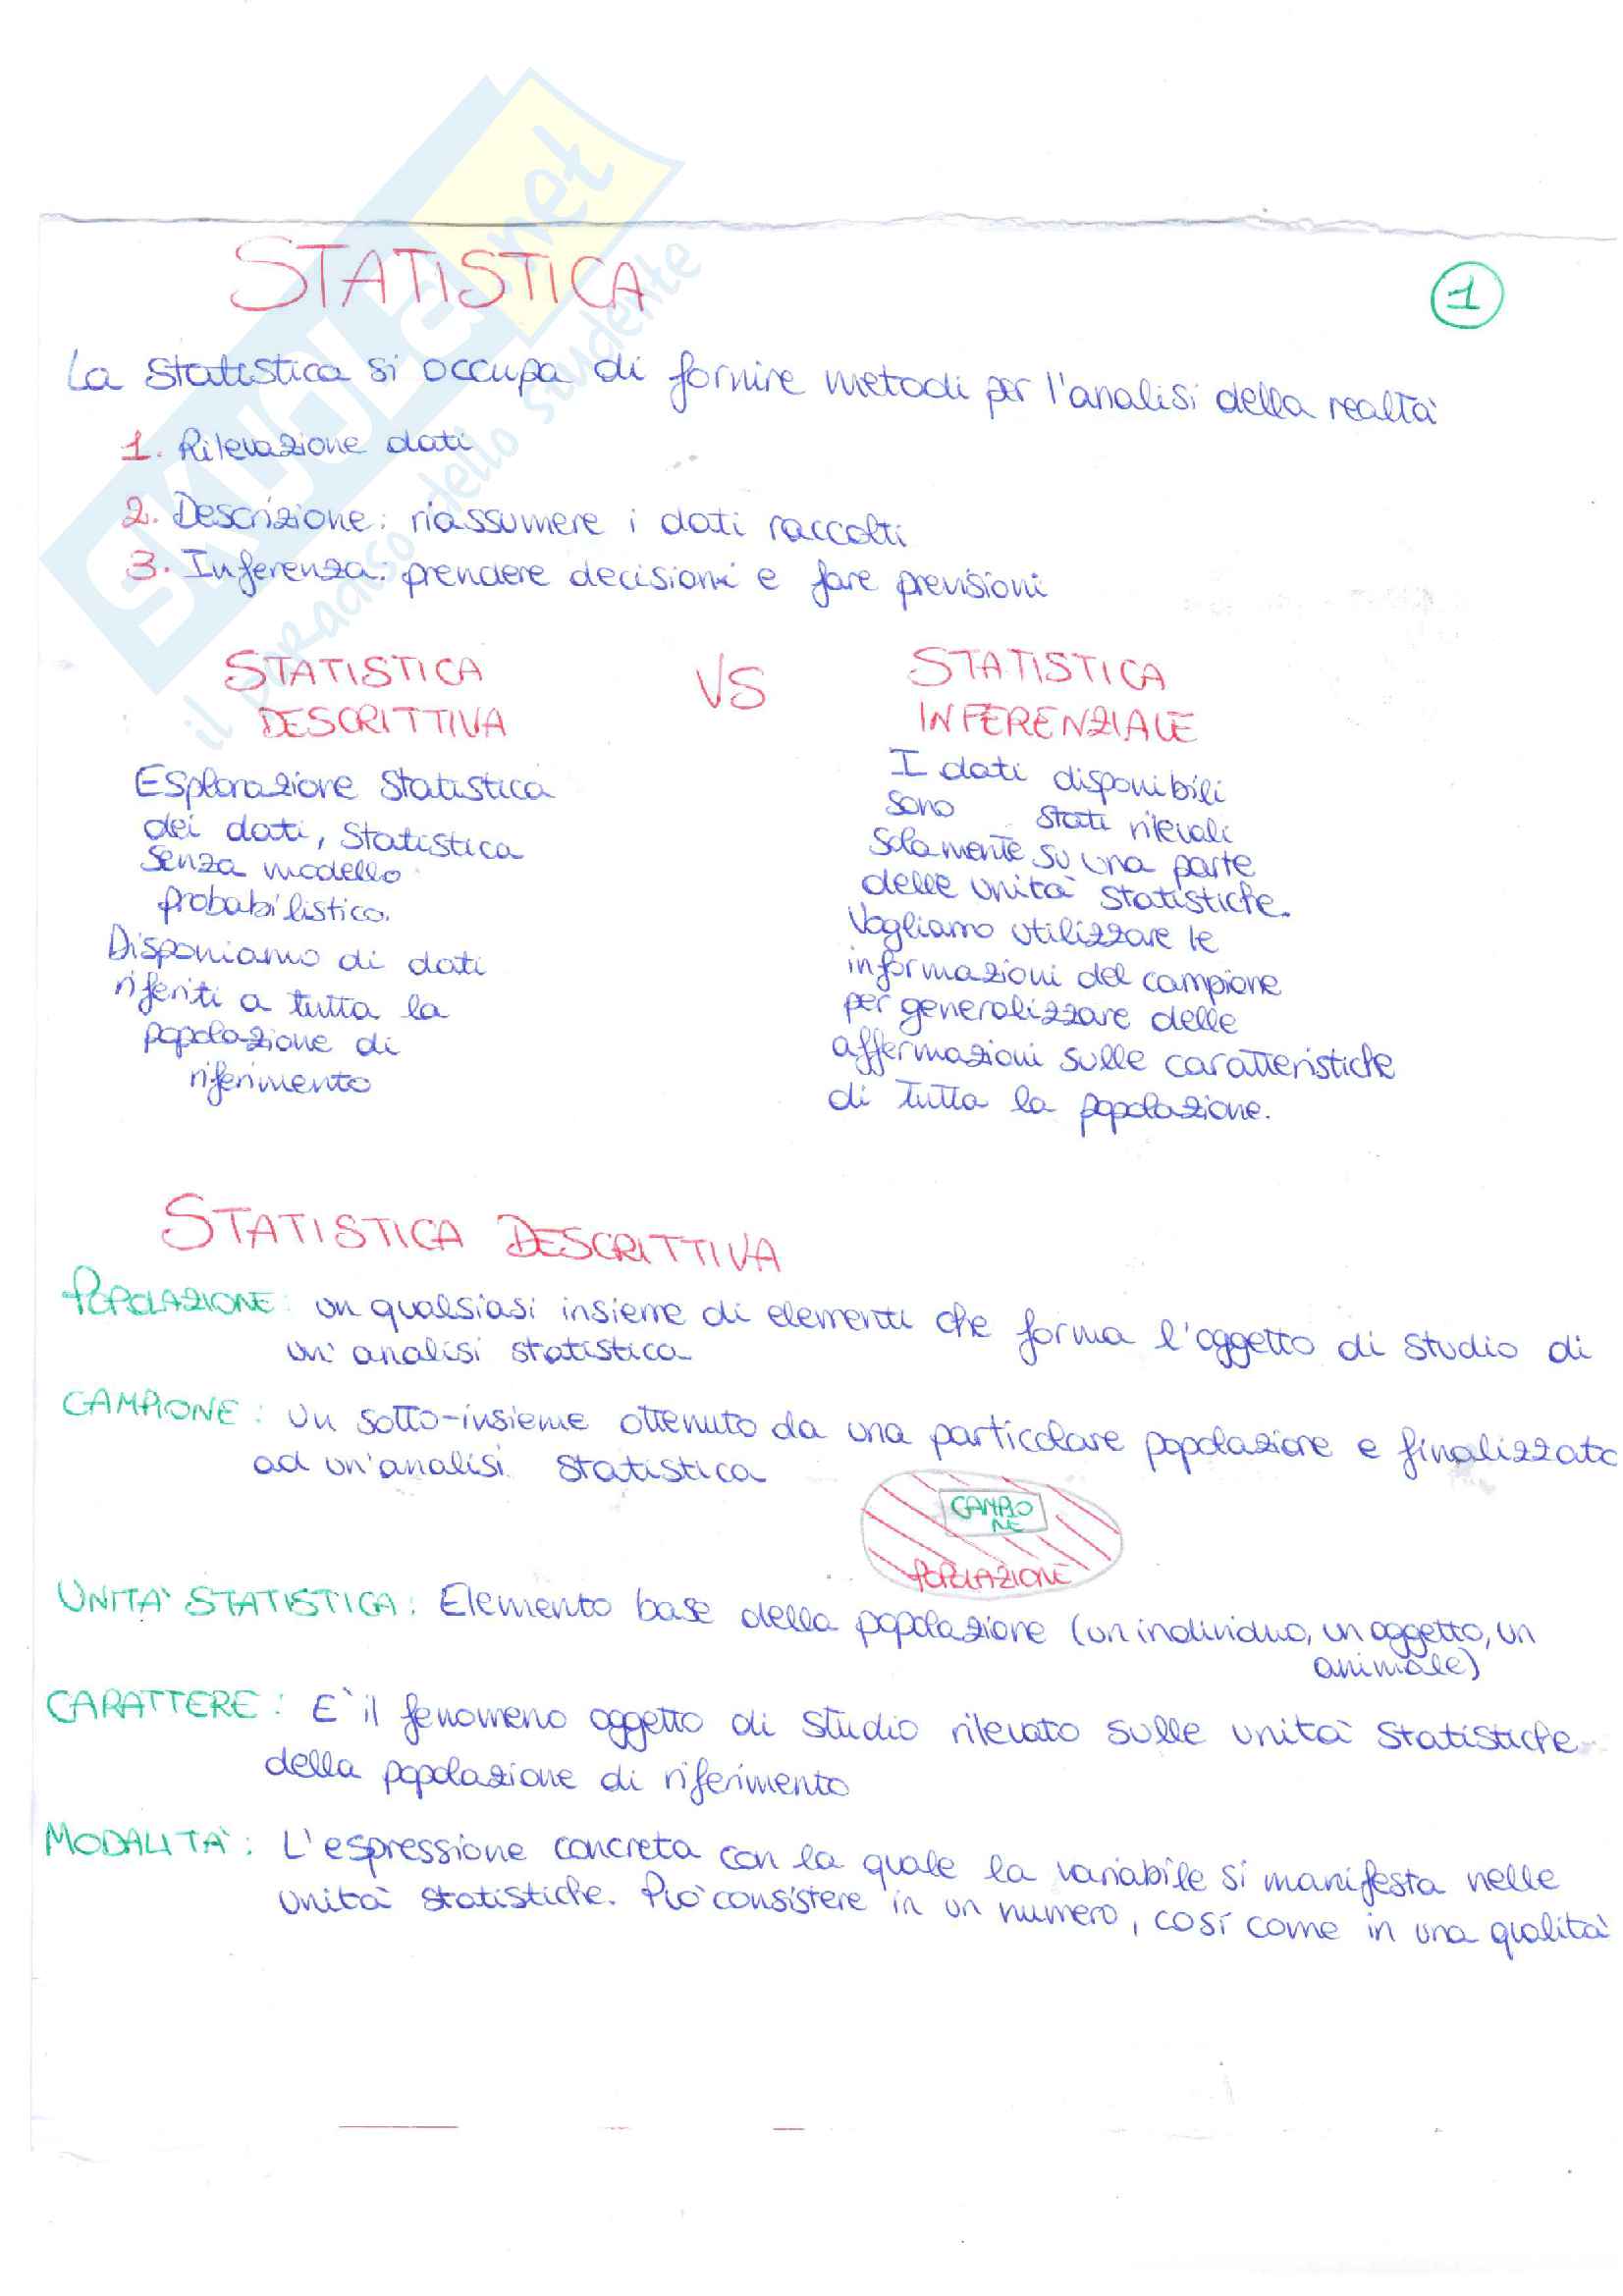 STATISTICA
1
La statistica si occupa di fornire metodi per l'analisi della realtà
1. Rilevazione dati
2. Descrizione: riassumere i dati raccolti
3. Inferenza: prendere decisioni e fare previsioni
STATISTICA
DESCRITTIVA
VS
STATISTICA
INFERENZIALE
Esplorazione statistica
dei dati, statistica
senza modello
probabilistico.
Disponiamo di dati
riferiti a tutta la
popolazione di
riferimento
I dati disponibili
sono stati rilevati
solamente su una parte
delle unità statistiche.
Vogliamo utilizzare le
informazioni del campione
per generalizzare delle
affermazioni sulle caratteristiche
di tutta la popolazione.
STATISTICA DESCRITTIVA
POPOLAZIONE: un qualsiasi insieme di elementi che forma l'oggetto di studio di
un'analisi statistica
CAMPIONE: Un sotto-insieme ottenuto da una particolare popolazione e finalizzato
ad un'analisi statistica
CAMPIO
NE
POPOLAZIONE
UNITA' STATISTICA: Elemento base della popolazione (un individuo, un oggetto, un
animale)
CARATTERE: E' il fenomeno oggetto di studio rilevato sulle unità statistiche
della popolazione di riferimento
MODALITA': L'espressione concreta con la quale la variabile si manifesta nelle
unità statistiche. Può consistere in un numero, così come in una qualità
SKUOLA.net
il paradiso dello studente